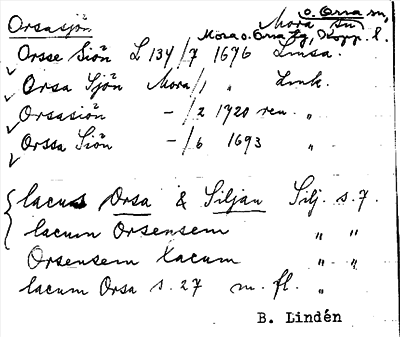 Orsasjön Mora o. Orsa sn,
Mora o. Orsa tg, Kopp. l.
Orsse Siön L 134/7 1676 Linsa.
Orsa Sjön Mora/1 " Link.
Orsasiön -/2 1720 ren. "
Orssa Siön -/6 1693 "
lacus Orsa & Siljan Silj. s. 7.
lacum Orsensem " "
Orsensem Lacum " "
lacum Orsa s. 27 m. fl. "
B. Lindén